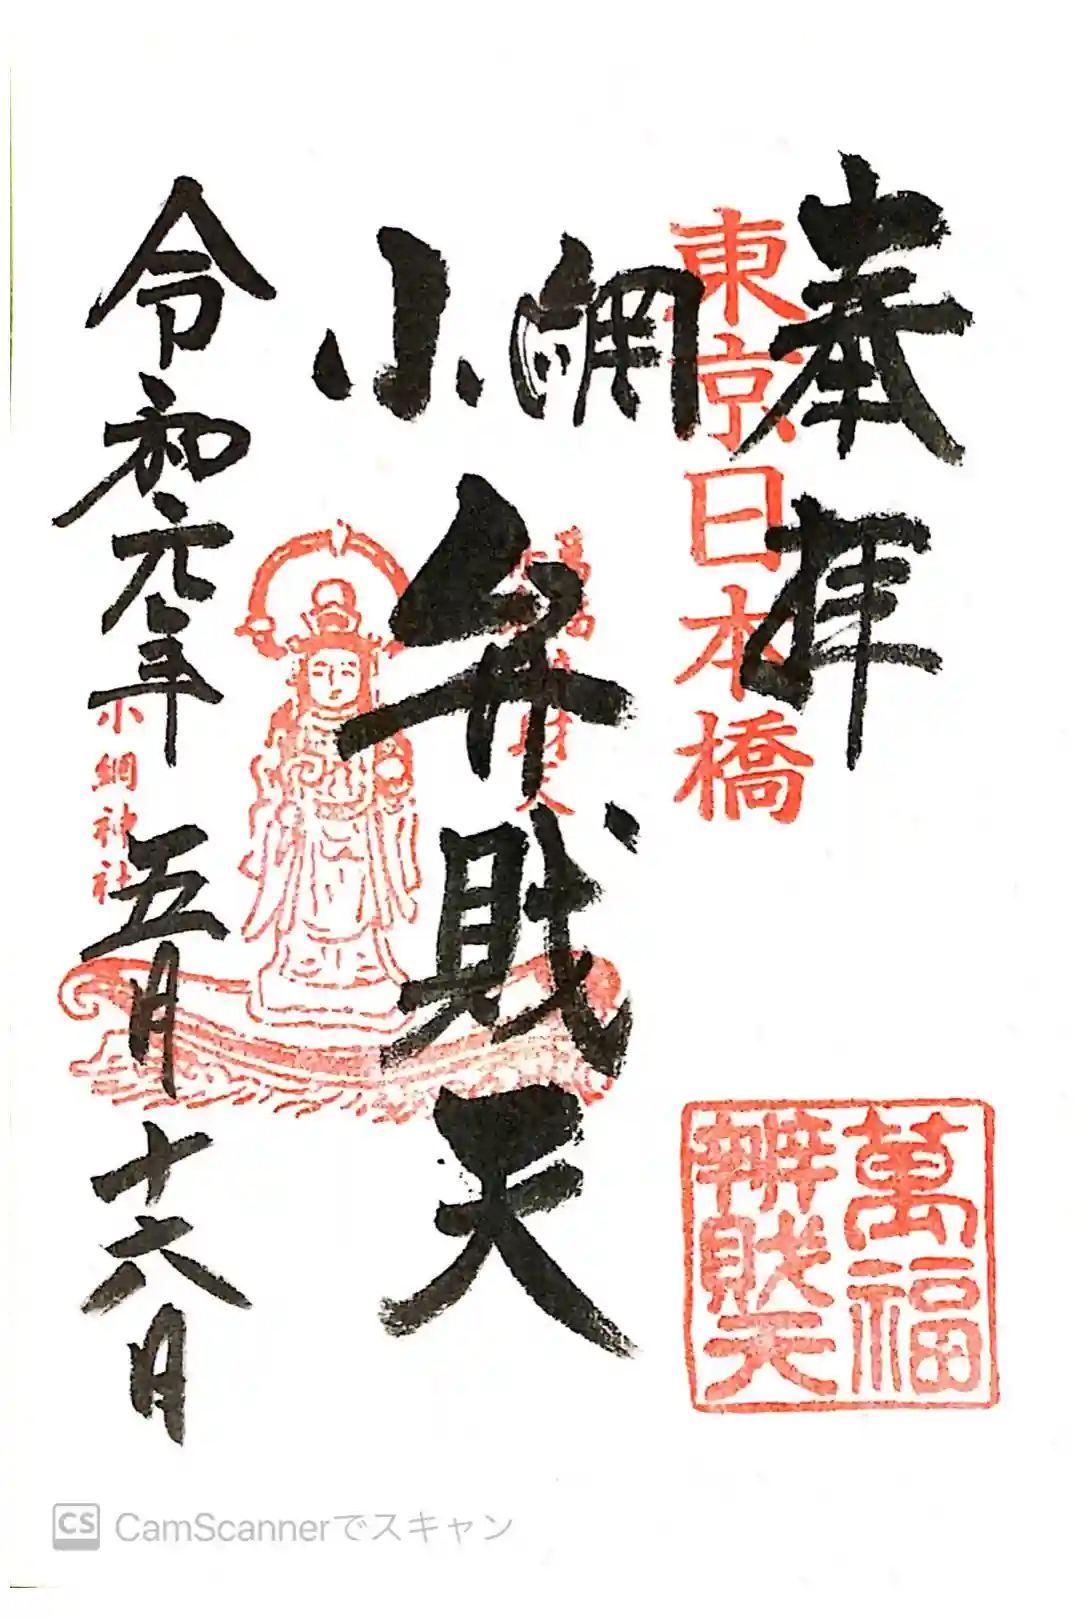 奉拝
東京日本橋
小網
弁財天
萬福
辨財天
小網神社
令和元年 五月 十六日
CS CamScannerでスキャン